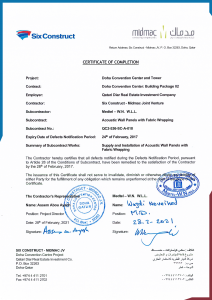 Six Construct
midmac مدماك
CERTIFICATE OF COMPLETION
Project: Doha Convention Center and Tower
Contract: Doha Convention Center; Building Package 02
Employer: Qatari Diar Real Estate Investment Company
Contractor: Six Construct - Midmac Joint Venture
Subcontractor: Medtel - W.H. W.L.L.
Subcontract: Acoustic Wall Panels with Fabric Wrapping
Subcontract No.:
Expiry Date of Defects Notification Period: 24th of February, 2017
Summary of Subcontract Works: Supply and Installation of Acoustic Wall Panels with Fabric Wrapping
The Contractor hereby certifies that all defects notified during the Defects Notification Period, pursuant to Article 28 of the Conditions of Subcontract, have been remedied to the satisfaction of the Contractor by the 28th of February, 2017.
The issuance of this Certificate shall not serve to invalidate, diminish or otherwise
either Party for the fulfilment of any obligation which remains unperformed
The Contractor's Representative
Name: Assem Aboe Ayash
Position: Project Director
Date: 28th of February, 2021
Signature:
Medtel - W.H. W.L.L.
Name:
Position: M.D.
Date: 28.2.2021
Signature:
SIX CONSTRUCT - MIDMAC JV
Doha Convention Centre Project
Qatari Diar Real Estate Investment Co
P.O. Box 32283
Doha Qatar